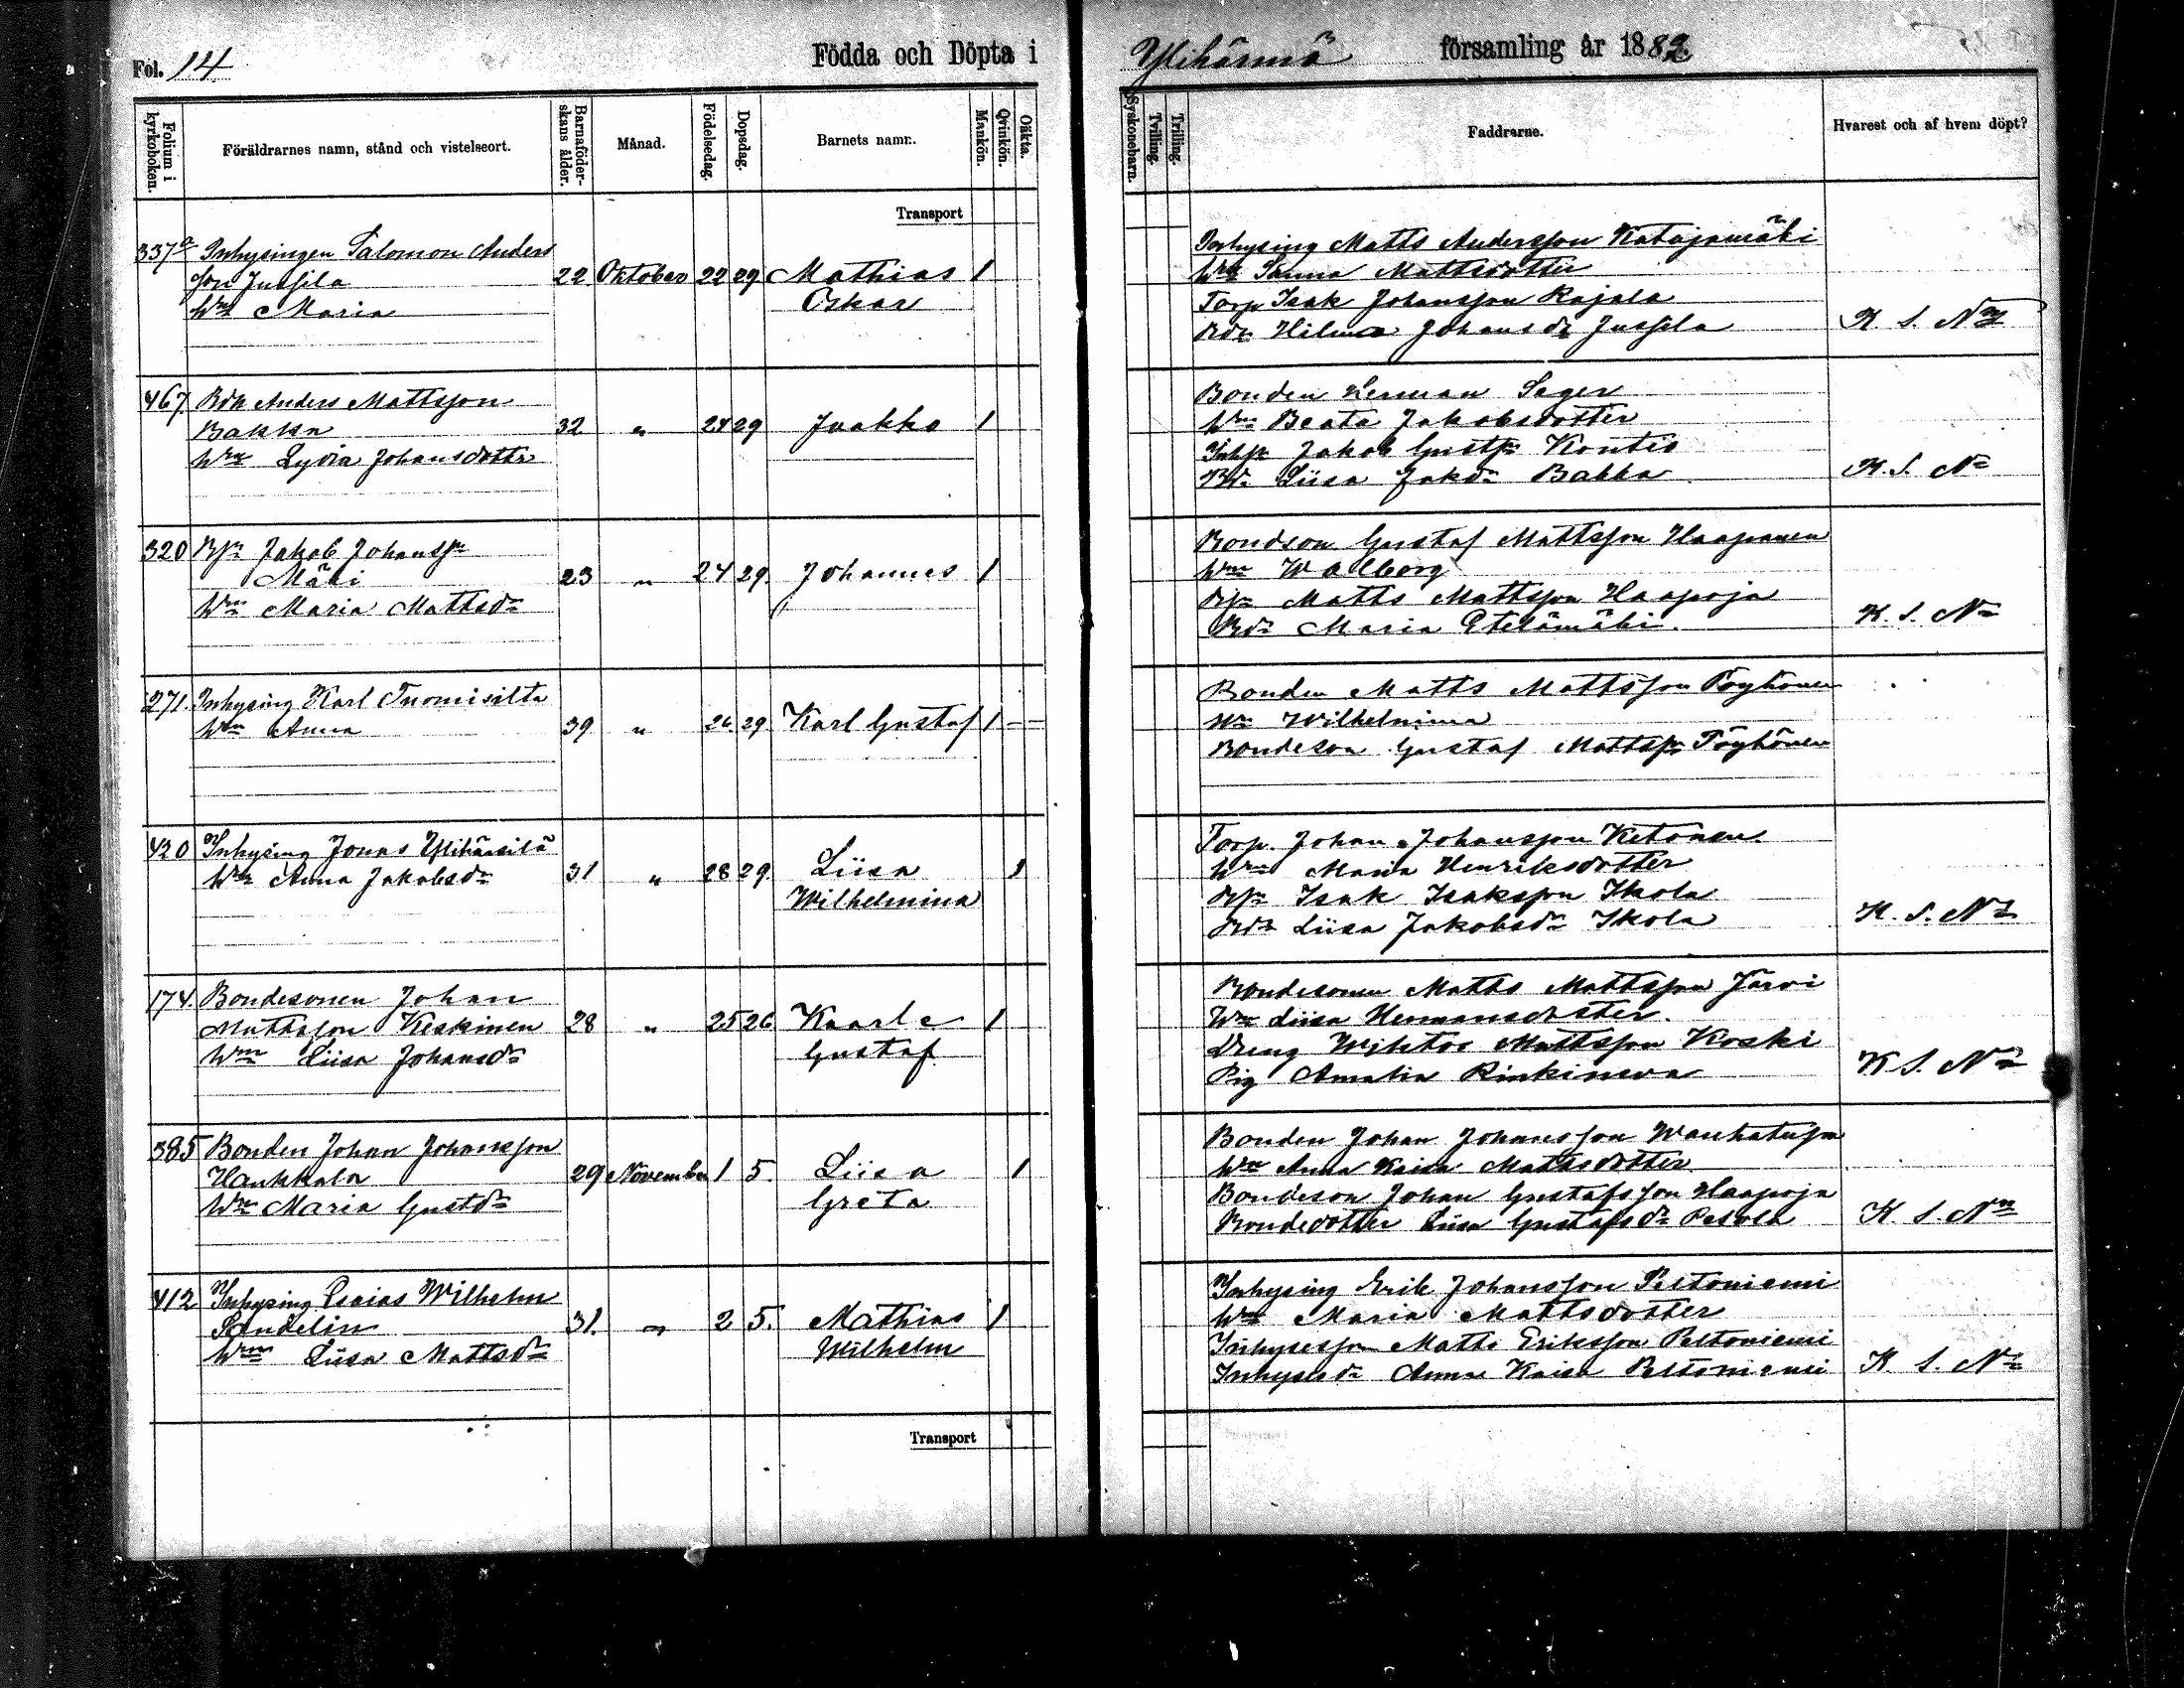 Fol. 14
Födda och Döpta i
Ylihärmä församling år 1882.
Folium i kyrkoboken.
Föräldrarnes namn, stånd och vistelseort.
Barnaföderskans ålder.
Månad.
Födelsedag.
Dopsdag.
Barnets namn.
Mankön.
Qvinkön.
Oäkta.
Syskonebarn.
Tvilling.
Trilling.
Faddrarne.
Hvarest och af hvem döpt?
Transport
337a Inhysingen Salomon Anders
son Jussila 22 Oktober 22 29 Mathias 1
Hru Maria Oskar
Inhysing Matts Andersson Katajamäki
Hru Sanna Mattsdotter
Torp Isak Johansson Rajala
Bdr Hilma Johansdr Jussila K. S. Nm
467. Bdn Anders Mattsson
Bakka 32 " 24 29 Jaakko 1
Hru Lydia Johansdotter
Bonden Herman Sager
Hru Beata Jakobsdotter
Inhs Jakob Gustfsn Kontio
Bdr Liisa Jakdr Bakka K. S. Nm
320 Bsn Jakob Johanssn
Mäki 23 " 24 29 Johannes 1
Hru Maria Mattsdr
Bondson Gustaf Mattsson Haapanen
Hru Walborg
Bsn Matts Mattsson Haapoja
Bdr Maria Etelämäki. K. S. Nm
271. Inhysing Karl Tuomisilta
Hru Anna 39 " 26. 29 Karl Gustaf 1 - -
Bonden Matts Mattsson Pöyhönen
Hru Wilhelmina
Bondeson Gustaf Mattssn Pöyhönen
420 Inhysing Jonas Ylihärsilä
Hru Anna Jakobsdr 31 " 28 29. Liisa 1
Wilhelmina
Torp. Johan Johansson Ketonen.
Hru Maria Henriksdotter
Bsn Isak Isaksson Ikola
Bdr Liisa Jakobsdr Ikola K. S. Nm
174. Bondesonen Johan
Mattsson Keskinen 28 " 25 26 Kaarle 1
Hru Liisa Johansdr Gustaf
Bondesonen Matts Mattsson Järvi
Hru Liisa Hermansdotter.
Dreng Wihtor Mattsson Koski
Pig Amalia Rinkineva K. S. Nm
385 Bonden Johan Johansson
Hankkala 29 November 1 5. Liisa 1
Hru Maria Gustdr Greta
Bonden Johan Johansson Wanhatupa
Hru Anna Kaisa Mattsdotter
Bondeson Johan Gustafsson Haapoja
Bondedotter Liisa Gustafsdr Pesola K. S. Nm
412 Inhysing Esaias Wilhelm
Sandelin 31. " 2 5. Mathias 1
Hru Liisa Mattsdr Wilhelm
Inhysing Erik Johansson Peltoniemi
Hru Maria Mattsdotter
Inhysesson Matts Eriksson Peltoniemi
Inhysesdr Anna Kaisa Peltoniemi K. S. Nm
Transport